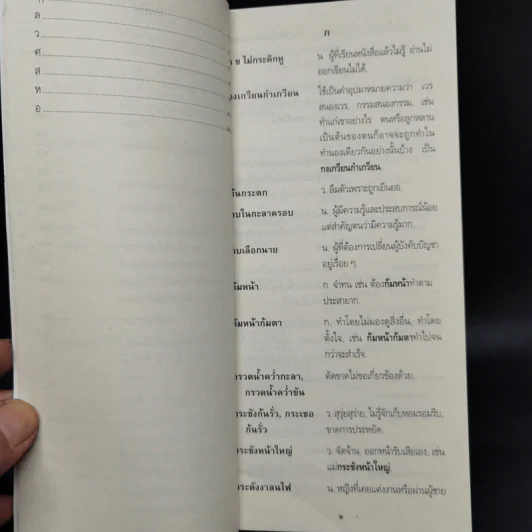 ล
ว
ศ
ส
ห
อ
ก
ข ไม่กระดิกหู น. ผู้ที่เรียนหนังสือแล้วไม่รู้ อ่านไม่
ออกเขียนไม่ได้.
งเกวียนกำเกวียน ใช้เป็นคำอุปมาหมายความว่า เวร
สนองเวร, กรรมสนองกรรม, เช่น
ทำแก่เขาอย่างไร ตนหรือลูกหลาน
เป็นต้นของตนก็อาจจะถูกทำใน
ทำนองเดียวกันอย่างนั้นบ้าง เป็น
กงเกวียนกำเกวียน.
ก้นกระดก ว. ลืมตัวเพราะถูกเยินยอ.
บในกะลาครอบ น. ผู้มีความรู้และประสบการณ์น้อย
แต่สำคัญตนว่ามีความรู้มาก.
บเลือกนาย น. ผู้ที่ต้องการเปลี่ยนผู้บังคับบัญชา
อยู่เรื่อย ๆ.
ก้มหน้า ก. จำทน เช่น ต้องก้มหน้าทำตาม
ประสายาก.
ก้มหน้าก้มตา ก. ทำโดยไม่มองดูสิ่งอื่น, ทำโดย
ตั้งใจ, เช่น ก้มหน้าก้มตาทำไปจน
กว่าจะสำเร็จ.
กรวดน้ำคว่ำกะลา, ตัดขาดไม่ขอเกี่ยวข้องด้วย.
กรวดน้ำคว่ำขัน
ระชังก้นรั่ว, กระเชอ ว. สุรุ่ยสุร่าย, ไม่รู้จักเก็บหอมรอมริบ,
ก้นรั่ว ขาดการประหยัด.
ระชังหน้าใหญ่ ว. จัดจ้าน, ออกหน้ารับเสียเอง, เช่น
แม่กระชังหน้าใหญ่.
ระดังงาลนไฟ น. หญิงที่เคยแต่งงานหรือผ่านผู้ชาย